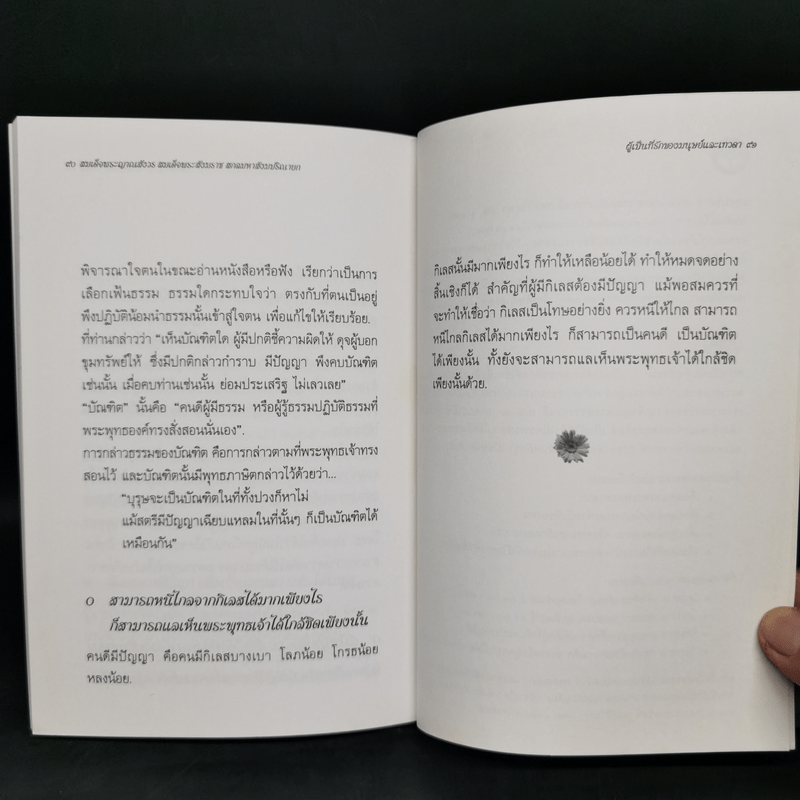 ๙๐ สมเด็จพระญาณสังวร สมเด็จพระสังฆราช สกลมหาสังฆปริณายก
พิจารณาใจตนในขณะอ่านหนังสือหรือฟัง เรียกว่าเป็นการ
เลือกเฟ้นธรรม ธรรมใดกระทบใจว่า ตรงกับที่ตนเป็นอยู่
พึงปฏิบัติน้อมนำธรรมนั้นเข้าสู่ใจตน เพื่อแก้ไขให้เรียบร้อย.
ที่ท่านกล่าวว่า “เห็นบัณฑิตใด ผู้มีปกติชี้ความผิดให้ ดุจผู้บอก
ขุมทรัพย์ให้ ซึ่งมีปกติกล่าวกำราบ มีปัญญา พึงคบบัณฑิต
เช่นนั้น เมื่อคบท่านเช่นนั้น ย่อมประเสริฐ ไม่เลวเลย”
“บัณฑิต” นั้นคือ “คนดีผู้มีธรรม หรือผู้รู้ธรรมปฏิบัติธรรมที่
พระพุทธองค์ทรงสั่งสอนนั่นเอง”.
การกล่าวธรรมของบัณฑิต คือการกล่าวตามที่พระพุทธเจ้าทรง
สอนไว้ และบัณฑิตนั้นมีพุทธภาษิตกล่าวไว้ด้วยว่า...
“บุรุษจะเป็นบัณฑิตในที่ทั้งปวงก็หาไม่
แม้สตรีมีปัญญาเฉียบแหลมในที่นั้นๆ ก็เป็นบัณฑิตได้
เหมือนกัน”
๐ สามารถหนีไกลจากกิเลสได้มากเพียงไร
ก็สามารถแลเห็นพระพุทธเจ้าได้ใกล้ชิดเพียงนั้น
คนดีมีปัญญา คือคนมีกิเลสบางเบา โลภน้อย โกรธน้อย
หลงน้อย.
ผู้เป็นที่รักของมนุษย์และเทวดา ๙๑
กิเลสนั้นมีมากเพียงไร ก็ทำให้เหลือน้อยได้ ทำให้หมดจดอย่าง
สิ้นเชิงก็ได้ สำคัญที่ผู้มีกิเลสต้องมีปัญญา แม้พอสมควรที่
จะทำให้เชื่อว่า กิเลสเป็นโทษอย่างยิ่ง ควรหนีให้ไกล สามารถ
หนีไกลกิเลสได้มากเพียงไร ก็สามารถเป็นคนดี เป็นบัณฑิต
ได้เพียงนั้น ทั้งยังจะสามารถแลเห็นพระพุทธเจ้าได้ใกล้ชิด
เพียงนั้นด้วย.